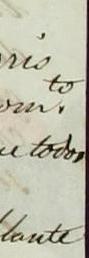 ris
to
om.
ue todos
lante